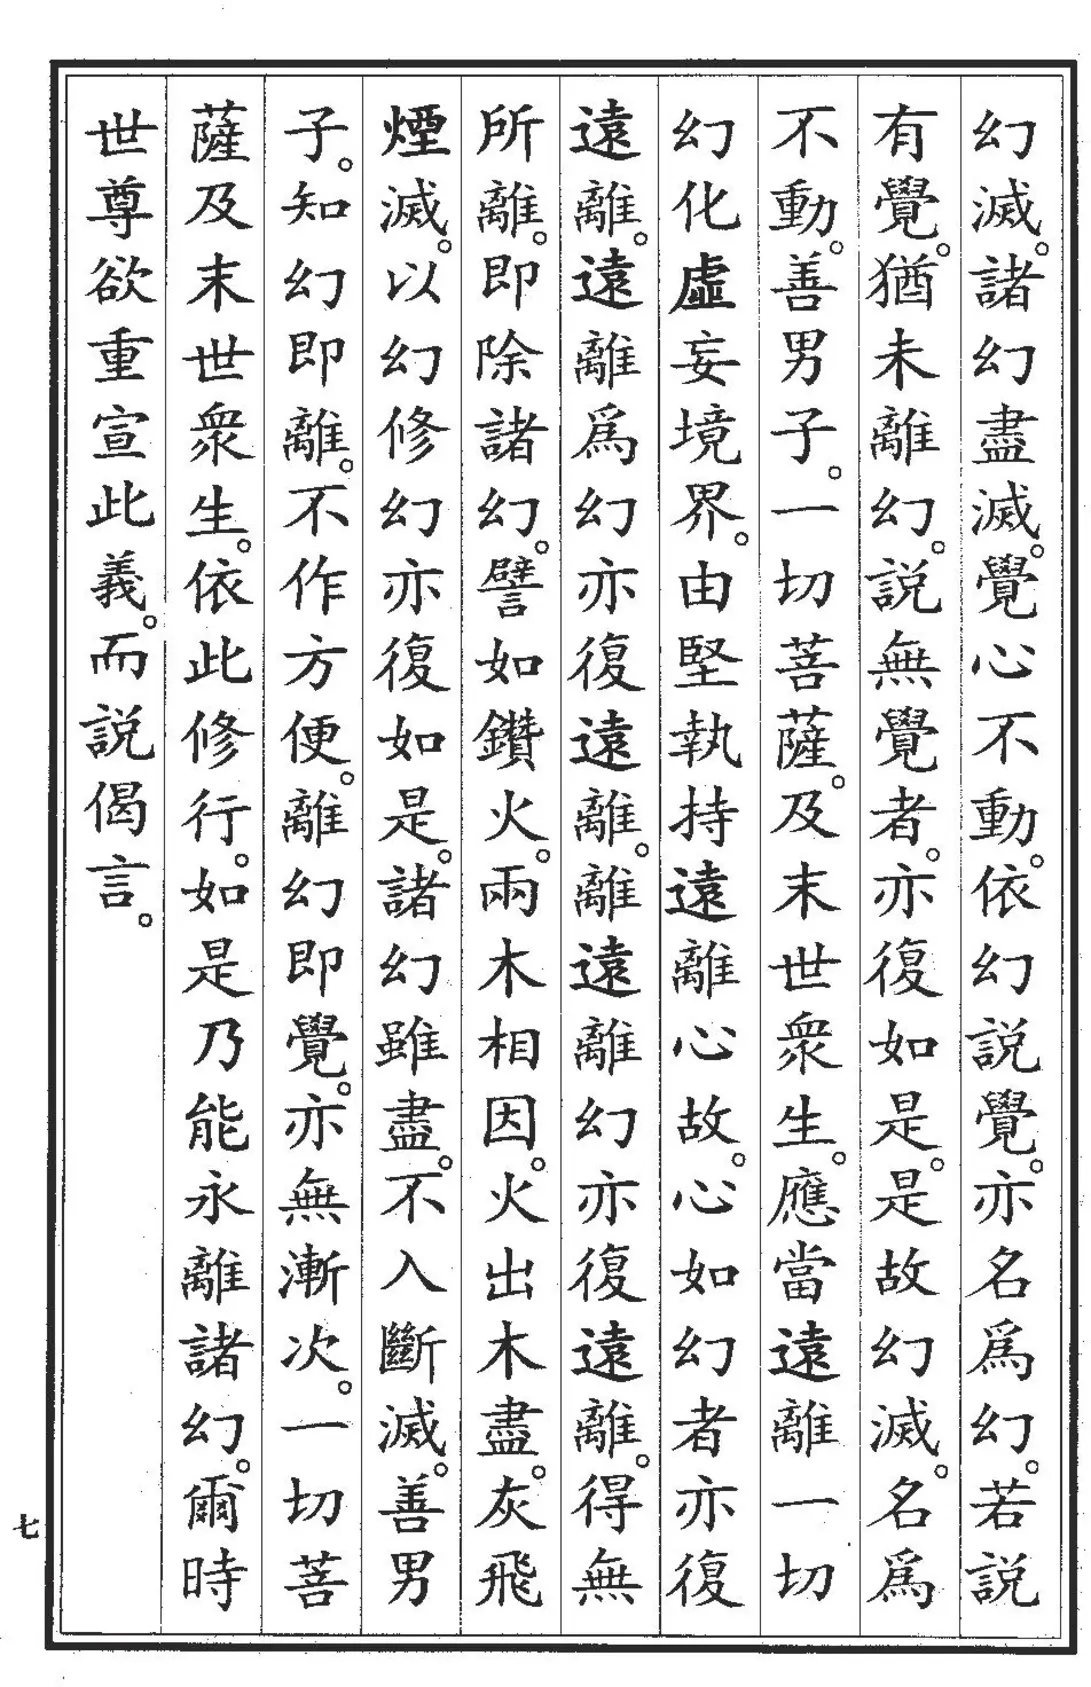 幻滅。諸幻盡滅。覺心不動。依幻說覺。亦名爲幻。若說
有覺。猶未離幻。說無覺者。亦復如是。是故幻滅。名爲
不動。善男子。一切菩薩。及末世衆生。應當遠離一切
幻化虛妄境界。由堅執持遠離心故。心如幻者亦復
遠離。遠離爲幻亦復遠離。離遠離幻亦復遠離。得無
所離。即除諸幻。譬如鑽火。兩木相因。火出木盡。灰飛
煙滅。以幻修幻亦復如是。諸幻雖盡。不入斷滅。善男
子。知幻即離。不作方便。離幻即覺。亦無漸次。一切菩
薩及末世衆生。依此修行。如是乃能永離諸幻。爾時
世尊欲重宣此義。而說偈言。
七